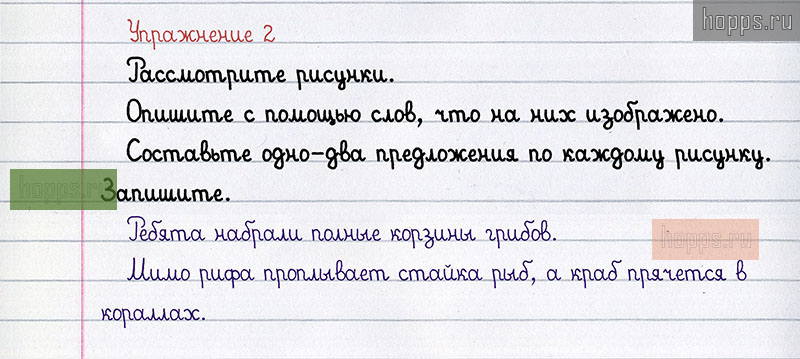 hopps.ru
Упражнение 2
Рассмотрите рисунки.
Опишите с помощью слов, что на них изображено.
Составьте одно-два предложения по каждому рисунку.
hopps.ru
Запишите.
Ребята набрали полные корзины грибов.
hopps.ru
Мимо рифа проплывает стайка рыб, а краб прячется в
кораллах.